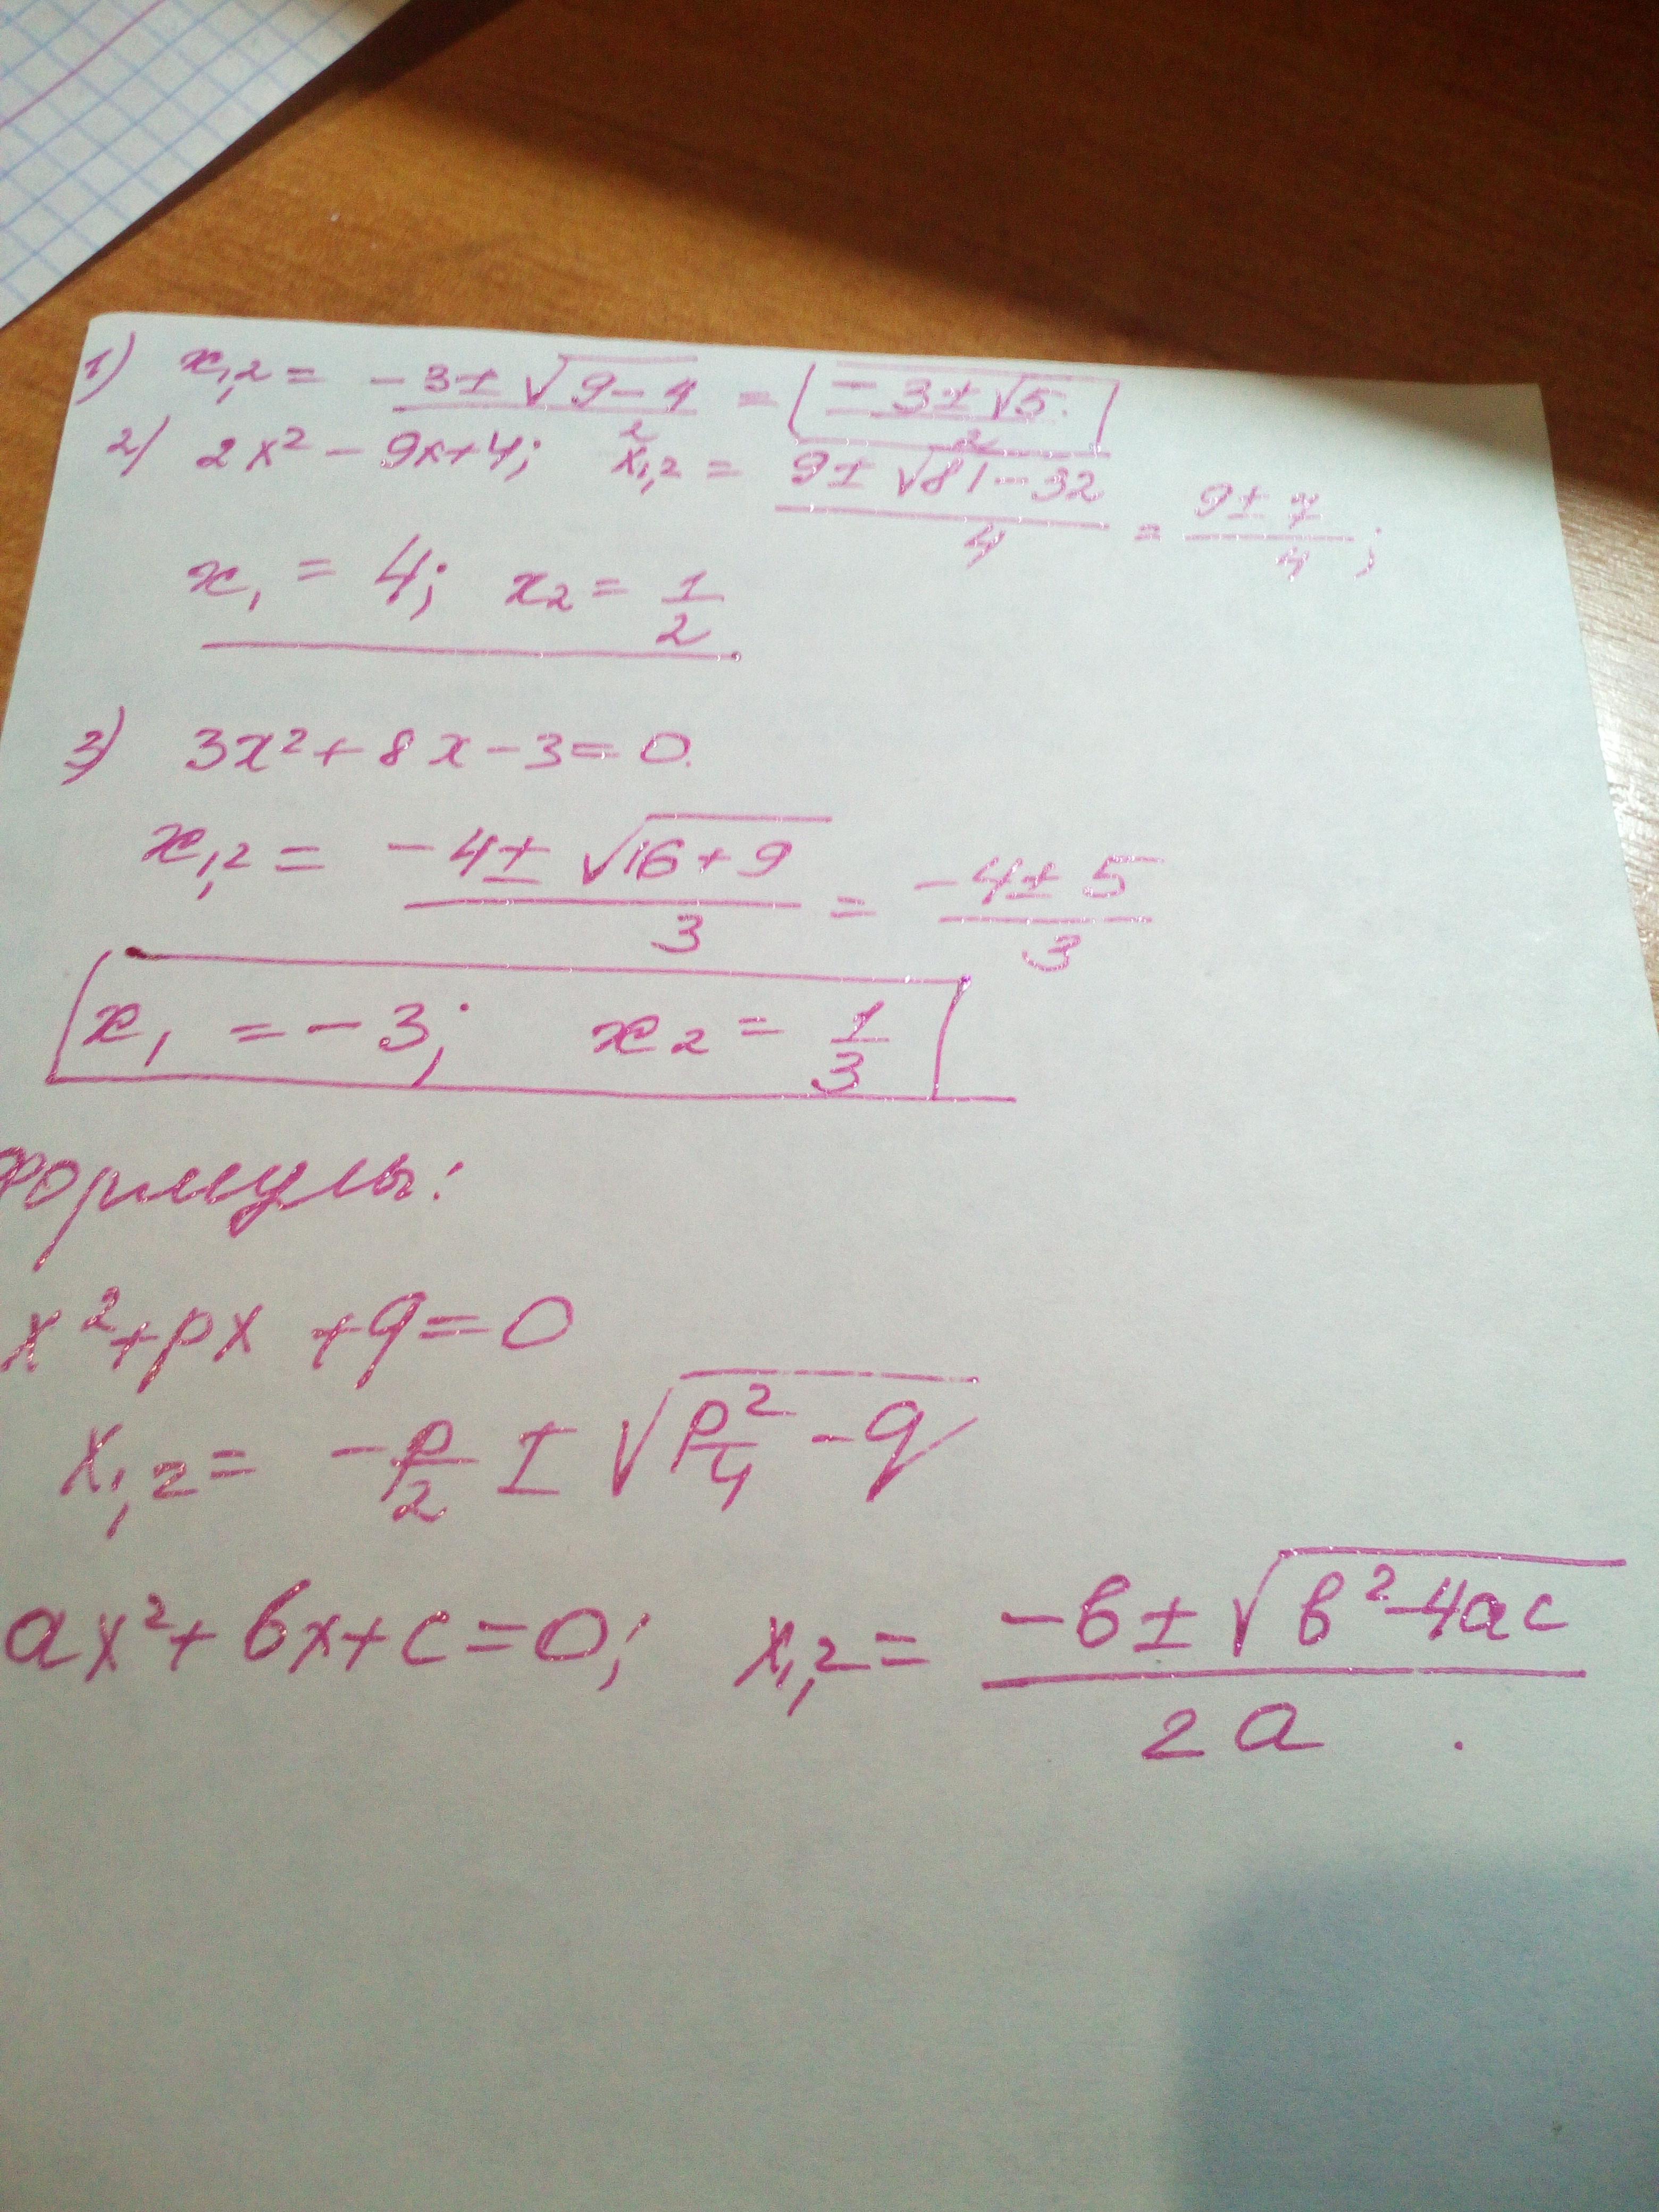 1) x₁,₂ = (-3 ± √(9-4))/2 = (-3 ± √5)/2
2) 2x² - 9x+4; x₁,₂ = (9 ± √(81-32))/4 = (9 ± 7)/4;
x₁ = 4; x₂ = 1/2.
3) 3x² + 8x - 3 = 0.
x₁,₂ = (-4 ± √(16+9))/3 = (-4 ± 5)/3
x₁ = -3; x₂ = 1/3
Формулы:
x² + px + q = 0
x₁,₂ = -p/2 ± √(p²/4 - q)
ax² + bx + c = 0; x₁,₂ = (-b ± √(b² - 4ac))/2a.